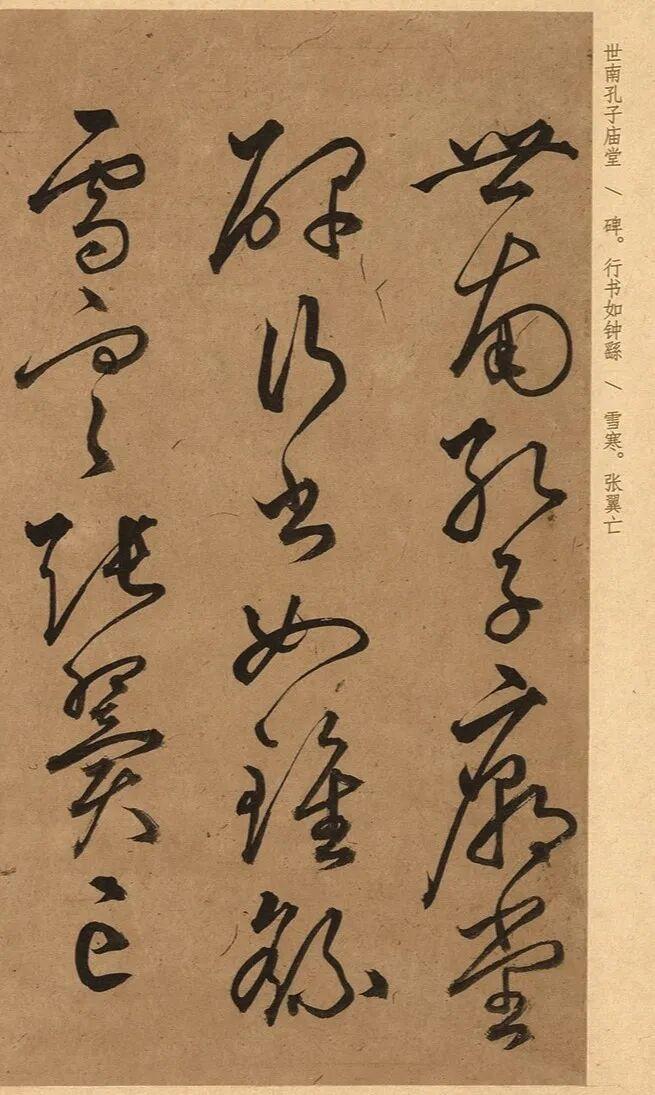 世南孔子庙堂 \ 碑。行书如钟繇 \ 雪寒。张翼亡
世南孔子廟堂
碑行書如鍾繇
雪寒張翼亡